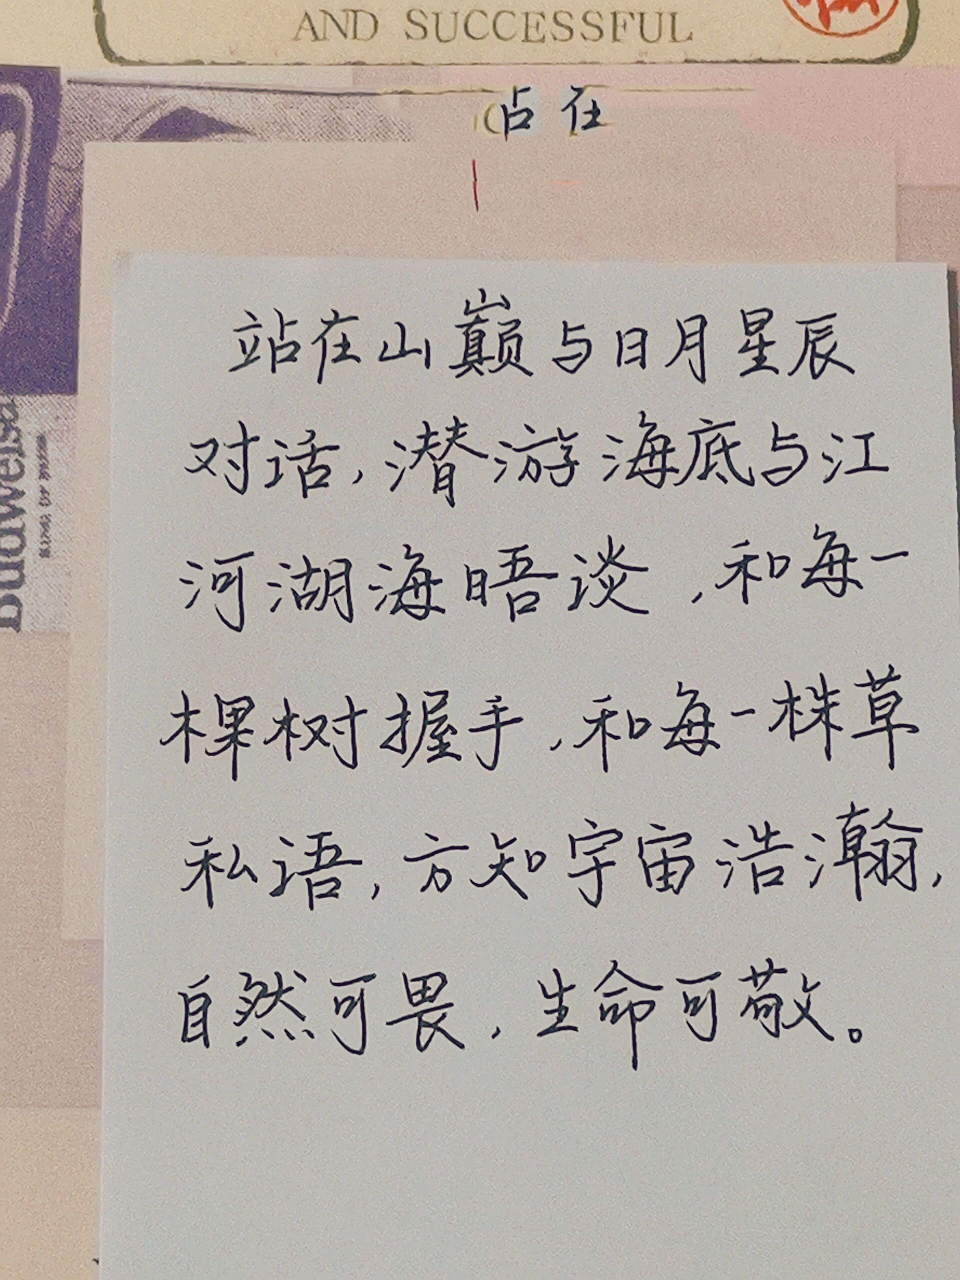 AND SUCCESSFUL
占在
站在山巅与日月星辰
对话,潜游海底与江
河湖海晤谈,和每一
棵树握手,和每一株草
私语,方知宇宙浩瀚,
自然可畏,生命可敬。
Budweiser